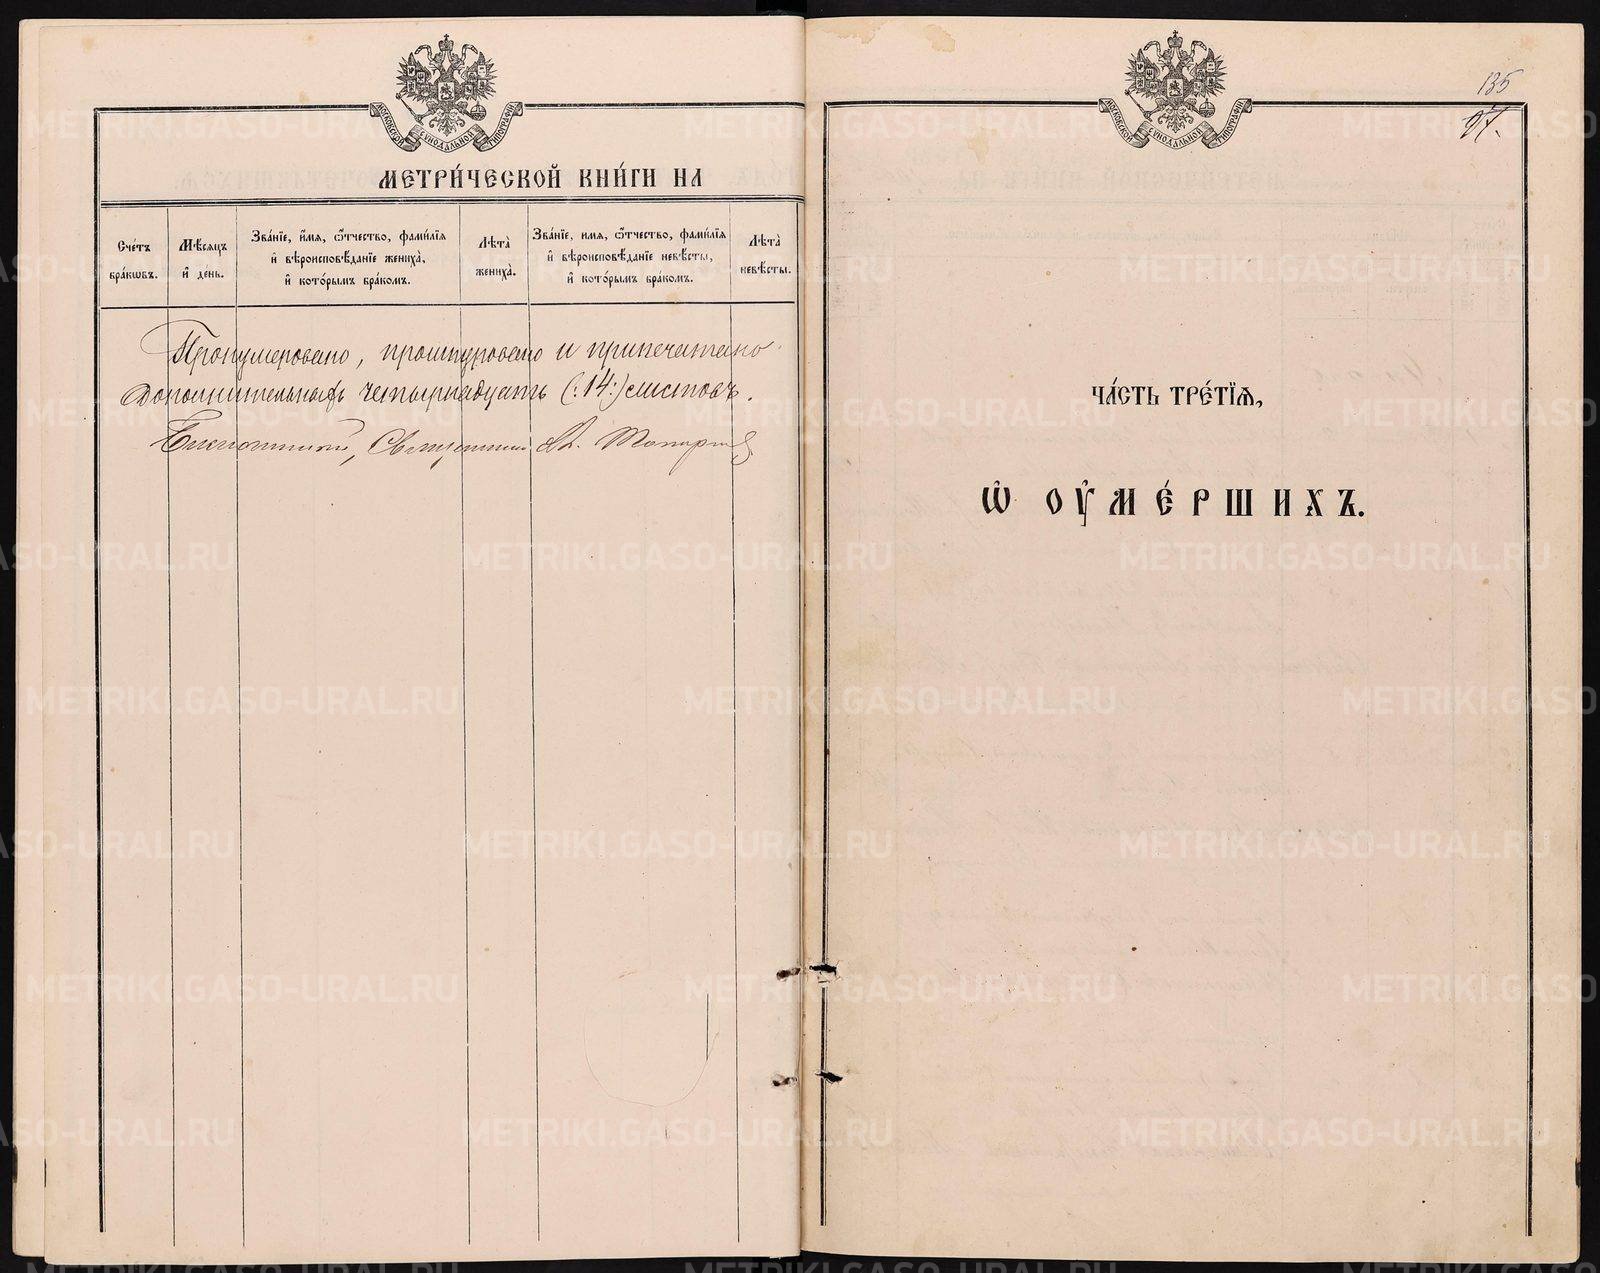 МОСКОВСКОЙ СУНОДАЛЬНОЙ ТИПОГРАФІИ
МЕТРИ́ЧЕСКОЙ КНИ́ГИ НА
Сче́тъ бра́кѡвъ.
Мѣ́сѧцъ и҆ де́нь.
Зва́нїе, и҆́мѧ, ѻ҆́тчество, фами́лїѧ
и҆ вѣроисповѣ́данїе жениха̀,
и҆ кото́рымъ бра́комъ.
Лѣ́та̀ жениха̀.
Зва́нїе, имѧ, ѻ҆́тчество, фами́лїѧ
и҆ вѣроисповѣ́данїе невѣ́сты,
и҆ кото́рымъ бра́комъ.
Лѣ́та̀ невѣ́сты.
Пронумеровано, прошнуровано и припечатано
дополнительныхъ четырнадцать (:14:) листовъ.
135
МОСКОВСКОЙ СУНОДАЛЬНОЙ ТИПОГРАФІИ
97.
ЧА́СТЬ ТРЕ́ТЇѦ,
Ѡ҆ ОУ҆МЕ́РШИХЪ.
METRIKI.GASO-URAL.RU